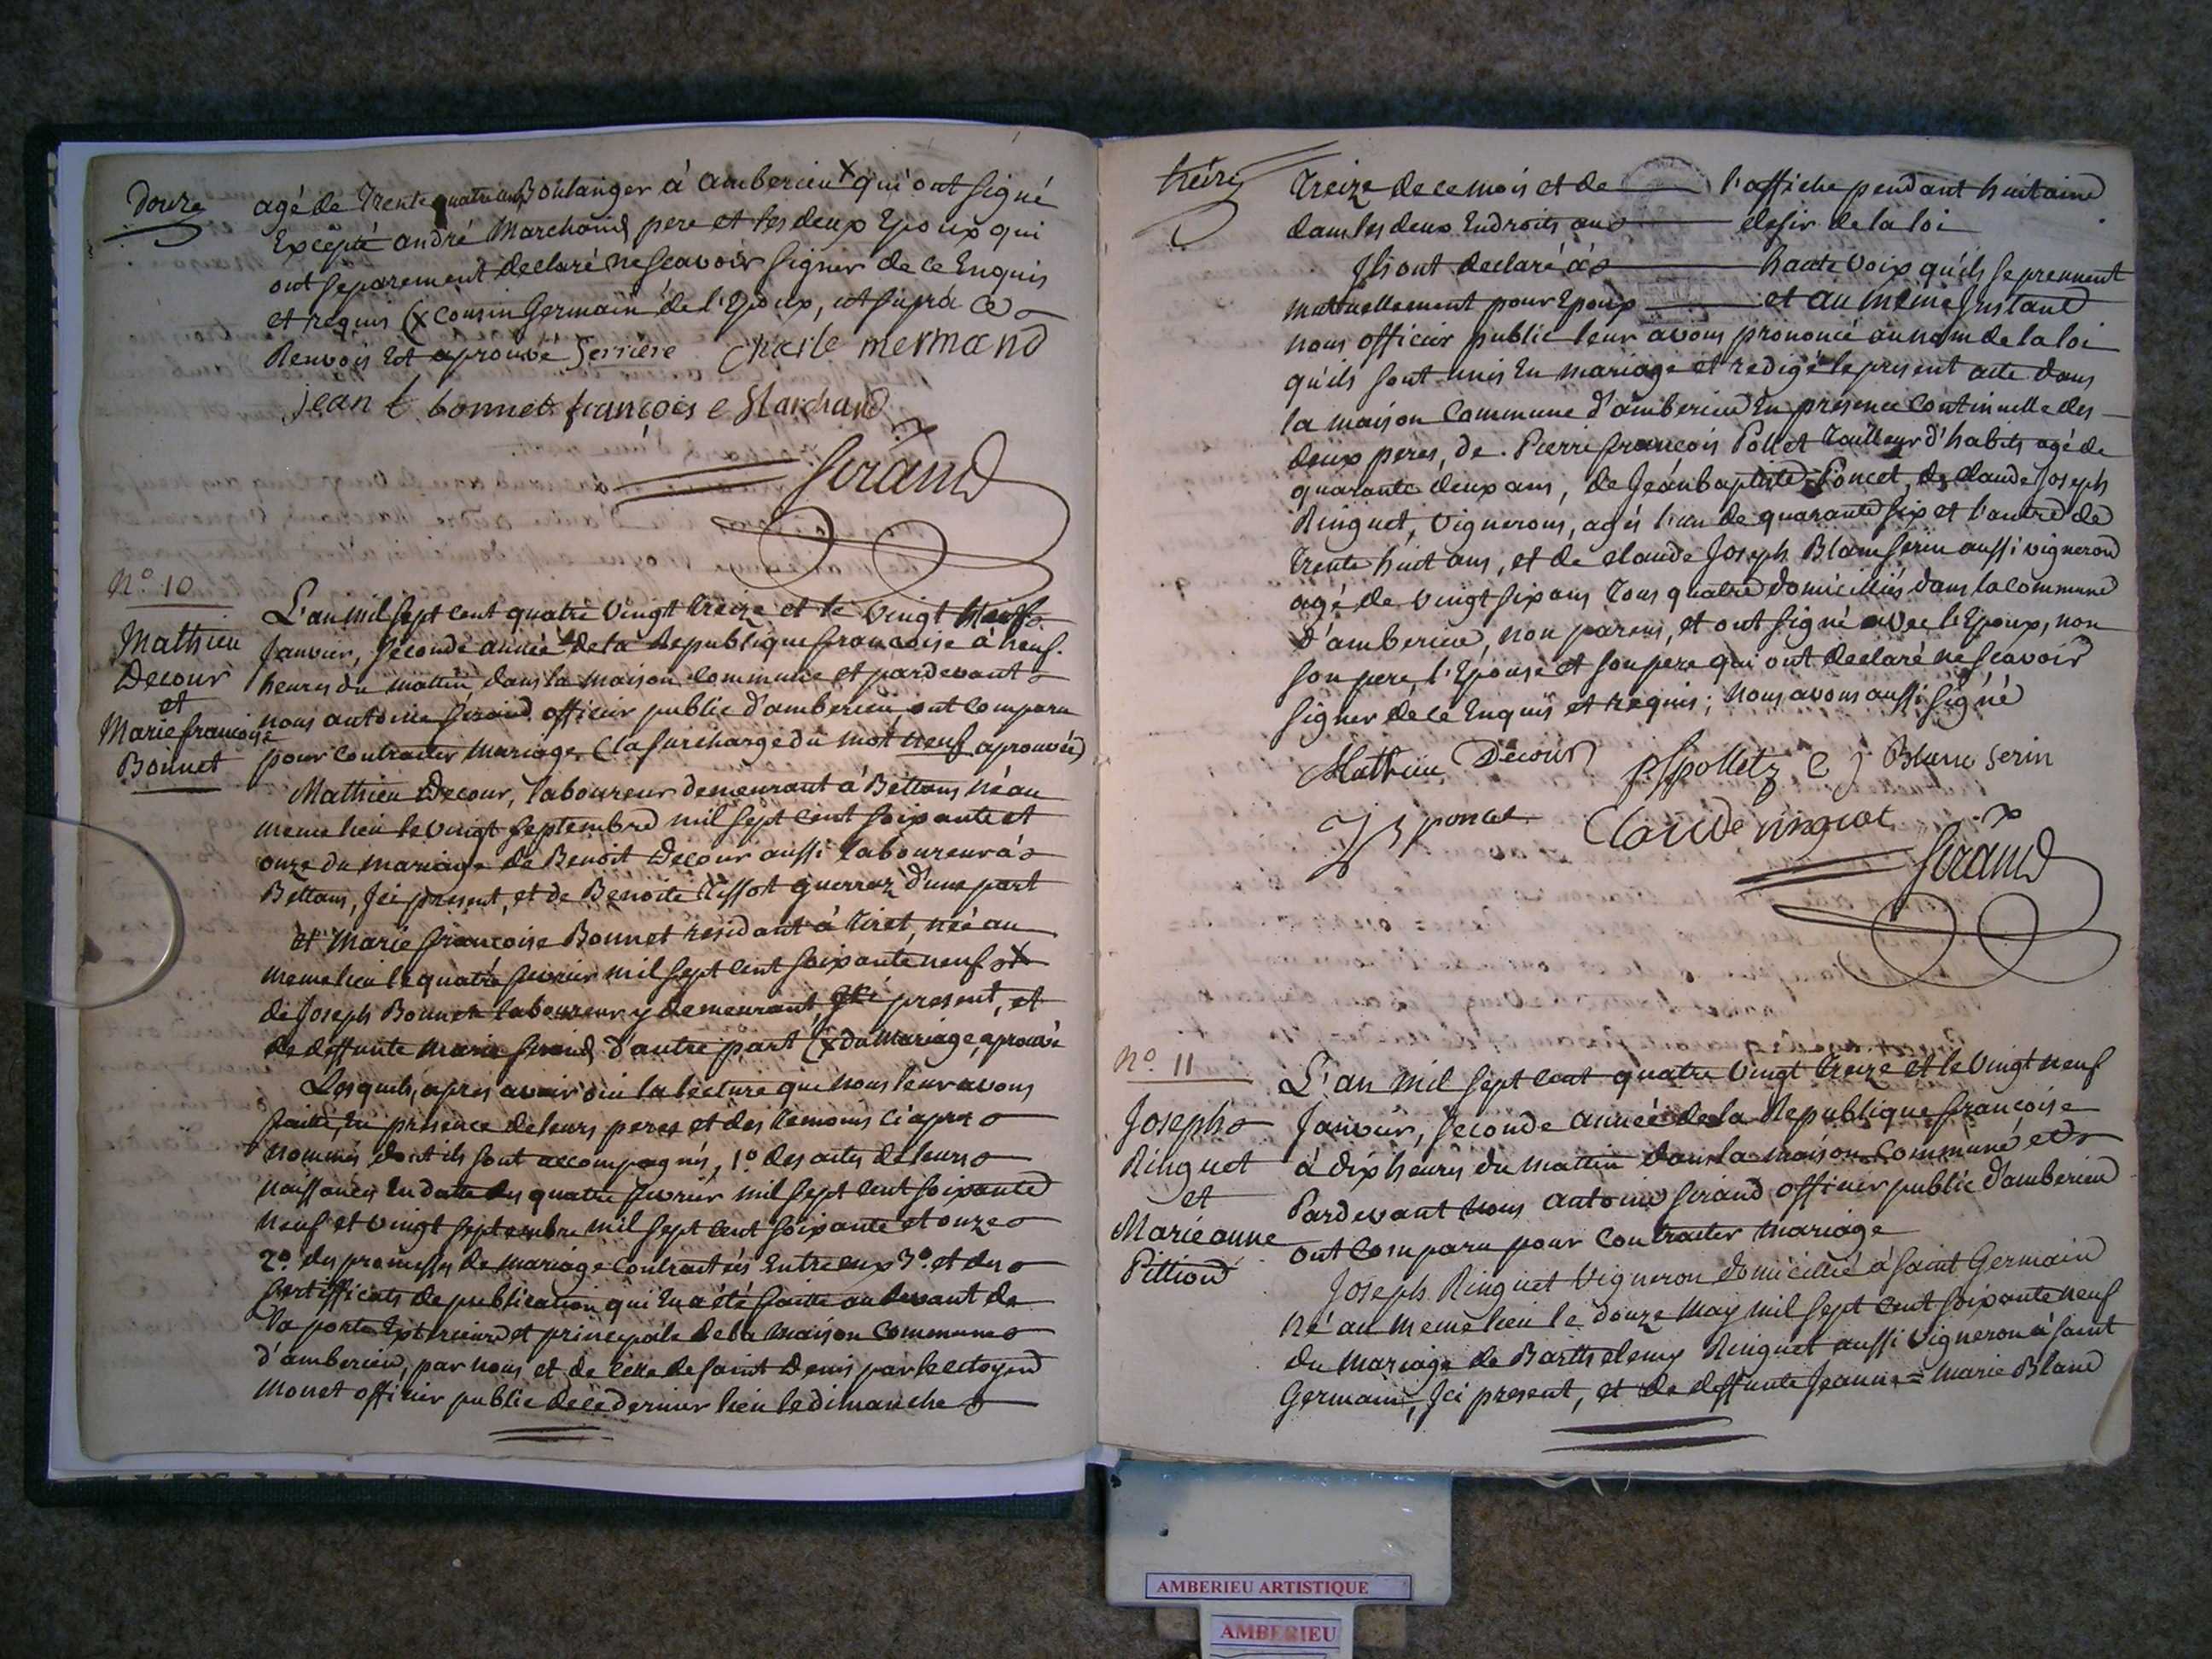 Douze
agé de Trente quatre ans Boulanger à Amberieu X qui ont signé
Excepté andré Marchand pere et les deux Epoux qui
ont separement declaré ne scavoir signer de ce Enquis
et requis (X cousin Germain de l'Epoux, ut supra Ce
Renvois Est aprouvé Serriere Charle mermand
jean t bonnet françois c Marchand
Sirand
N.o 10
Mathieu
Decour
et
Marie francoise
Bonnet
L'an mil sept cent quatre vingt treize et le vingt Neuf
Janvier, seconde année de la Republique françoise à neuf
heures du mattin dans la maison commune et pardevant
nous antoine Sirand officier public d'amberieu, ont comparu
pour contracter mariage (la surcharge du mot neuf aprouvée)
Mathieu Decour, laboureur demeurant à Bettans né au
meme lieu le vingt septembre mil sept cent soixante et
onze du mariage de Benoit Decour aussi laboureur à
Bettans, Ici present, et de Benoite Tissot guerraz d'une part
et Marie francoise Bonnet residant à Tiret, née au
meme lieu le quatre fevrier mil sept cent soixante neuf X
de Joseph Bonnet laboureur y demeurant, Ici present, et
de deffunte Marie Sirand d'autre part (X du Mariage, aprouvé
Lesquels, apres avoir oui la lecture que nous leur avons
faitte, En presence de leurs peres et des temoins ci apres
nommés dont ils sont accompagnés, 1o des actes de leurs
naissances En datte des quatre fevrier mil sept cent soixante
neuf et vingt septembre mil sept cent soixante et onze
2o des promesses de mariage contractées Entre eux 3o et des
Certifficats de publication qui En a été faitte au devant de
la porte Exterieure et principale de la maison Commune
d'amberieu, par nous et de celle de saint Denis par le citoyen
Monet officier public de ce dernier lieu le dimanche
treize
Treize de ce mois et de l'affiche pendant huitaine
dans les deux Endroits au desir de la loi
Ils ont declaré à haute voix qu'ils se prennent
mutuellement pour Epoux et au même Instant
nous officier public leur avons prononcé au nom de la loi
qu'ils sont unis En mariage et redigé le present acte dans
la maison Commune d'amberieu En presence continuelle des
deux peres, de Pierre françois Pollet Tailleur d'habits agé de
quarante deux ans, de Jean baptiste Poncet, de claude Joseph
Ringuet, vignerons, agés l'un de quarante six et l'autre de
Trente huit ans, et de claude Joseph Blanc serin aussi vigneron
agé de vingt six ans Tous quatre domiciliés dans la commune
d'amberieu, non parens, et ont signé avec l'Epoux, non
son pere, l'Epouse et son pere qui ont declaré ne scavoir
signer de ce Enquis et requis; nous avons aussi signé
Mathieu Decour pfpolletz C J Blanc Serin
JB poncet Claude ringuet
Sirand
N.o 11
Joseph
Ringuet
et
Marie anne
Pittion
L'an mil sept cent quatre vingt Treize et le vingt neuf
Janvier, seconde année de la Republique françoise
à dix heures du mattin dans la maison Commune et
Pardevant nous antoine Sirand officier public d'amberieu
ont comparu pour contracter mariage
Joseph Ringuet vigneron domicillié à saint Germain
né au meme lieu le douze may mil sept cent soixante neuf
du mariage de Barthelemy Ringuet aussi vigneron à saint
Germain, Ici present, et de deffunte Jeanne = marie Blanc
AMBERIEU ARTISTIQUE
AMBERIEU